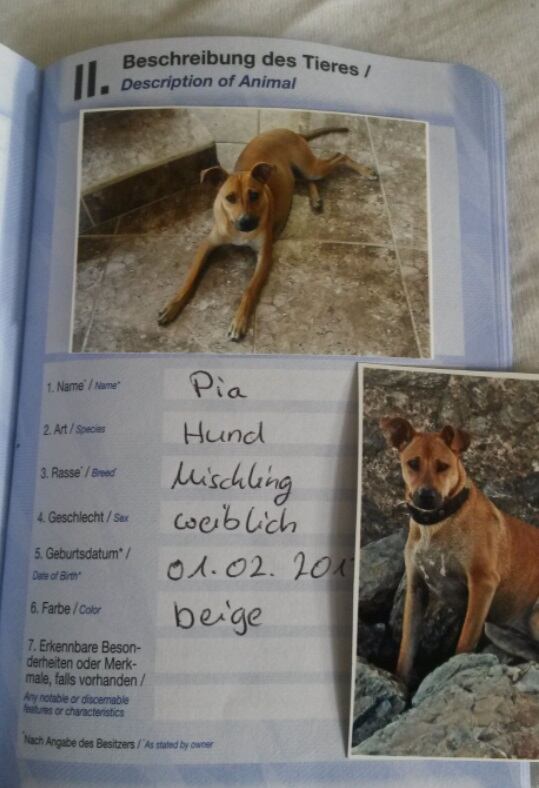 II.
Beschreibung des Tieres /
Description of Animal
1. Name* / Name*
Pia
2. Art / Species
Hund
3. Rasse* / Breed*
Mischling
4. Geschlecht / Sex
weiblich
5. Geburtsdatum* /
Date of Birth*
01.02.
6. Farbe / Color
beige
7. Erkennbare Beson-
derheiten oder Merk-
male, falls vorhanden /
Any notable or discernable
features or characteristics
*Nach Angabe des Besitzers / *As stated by owner